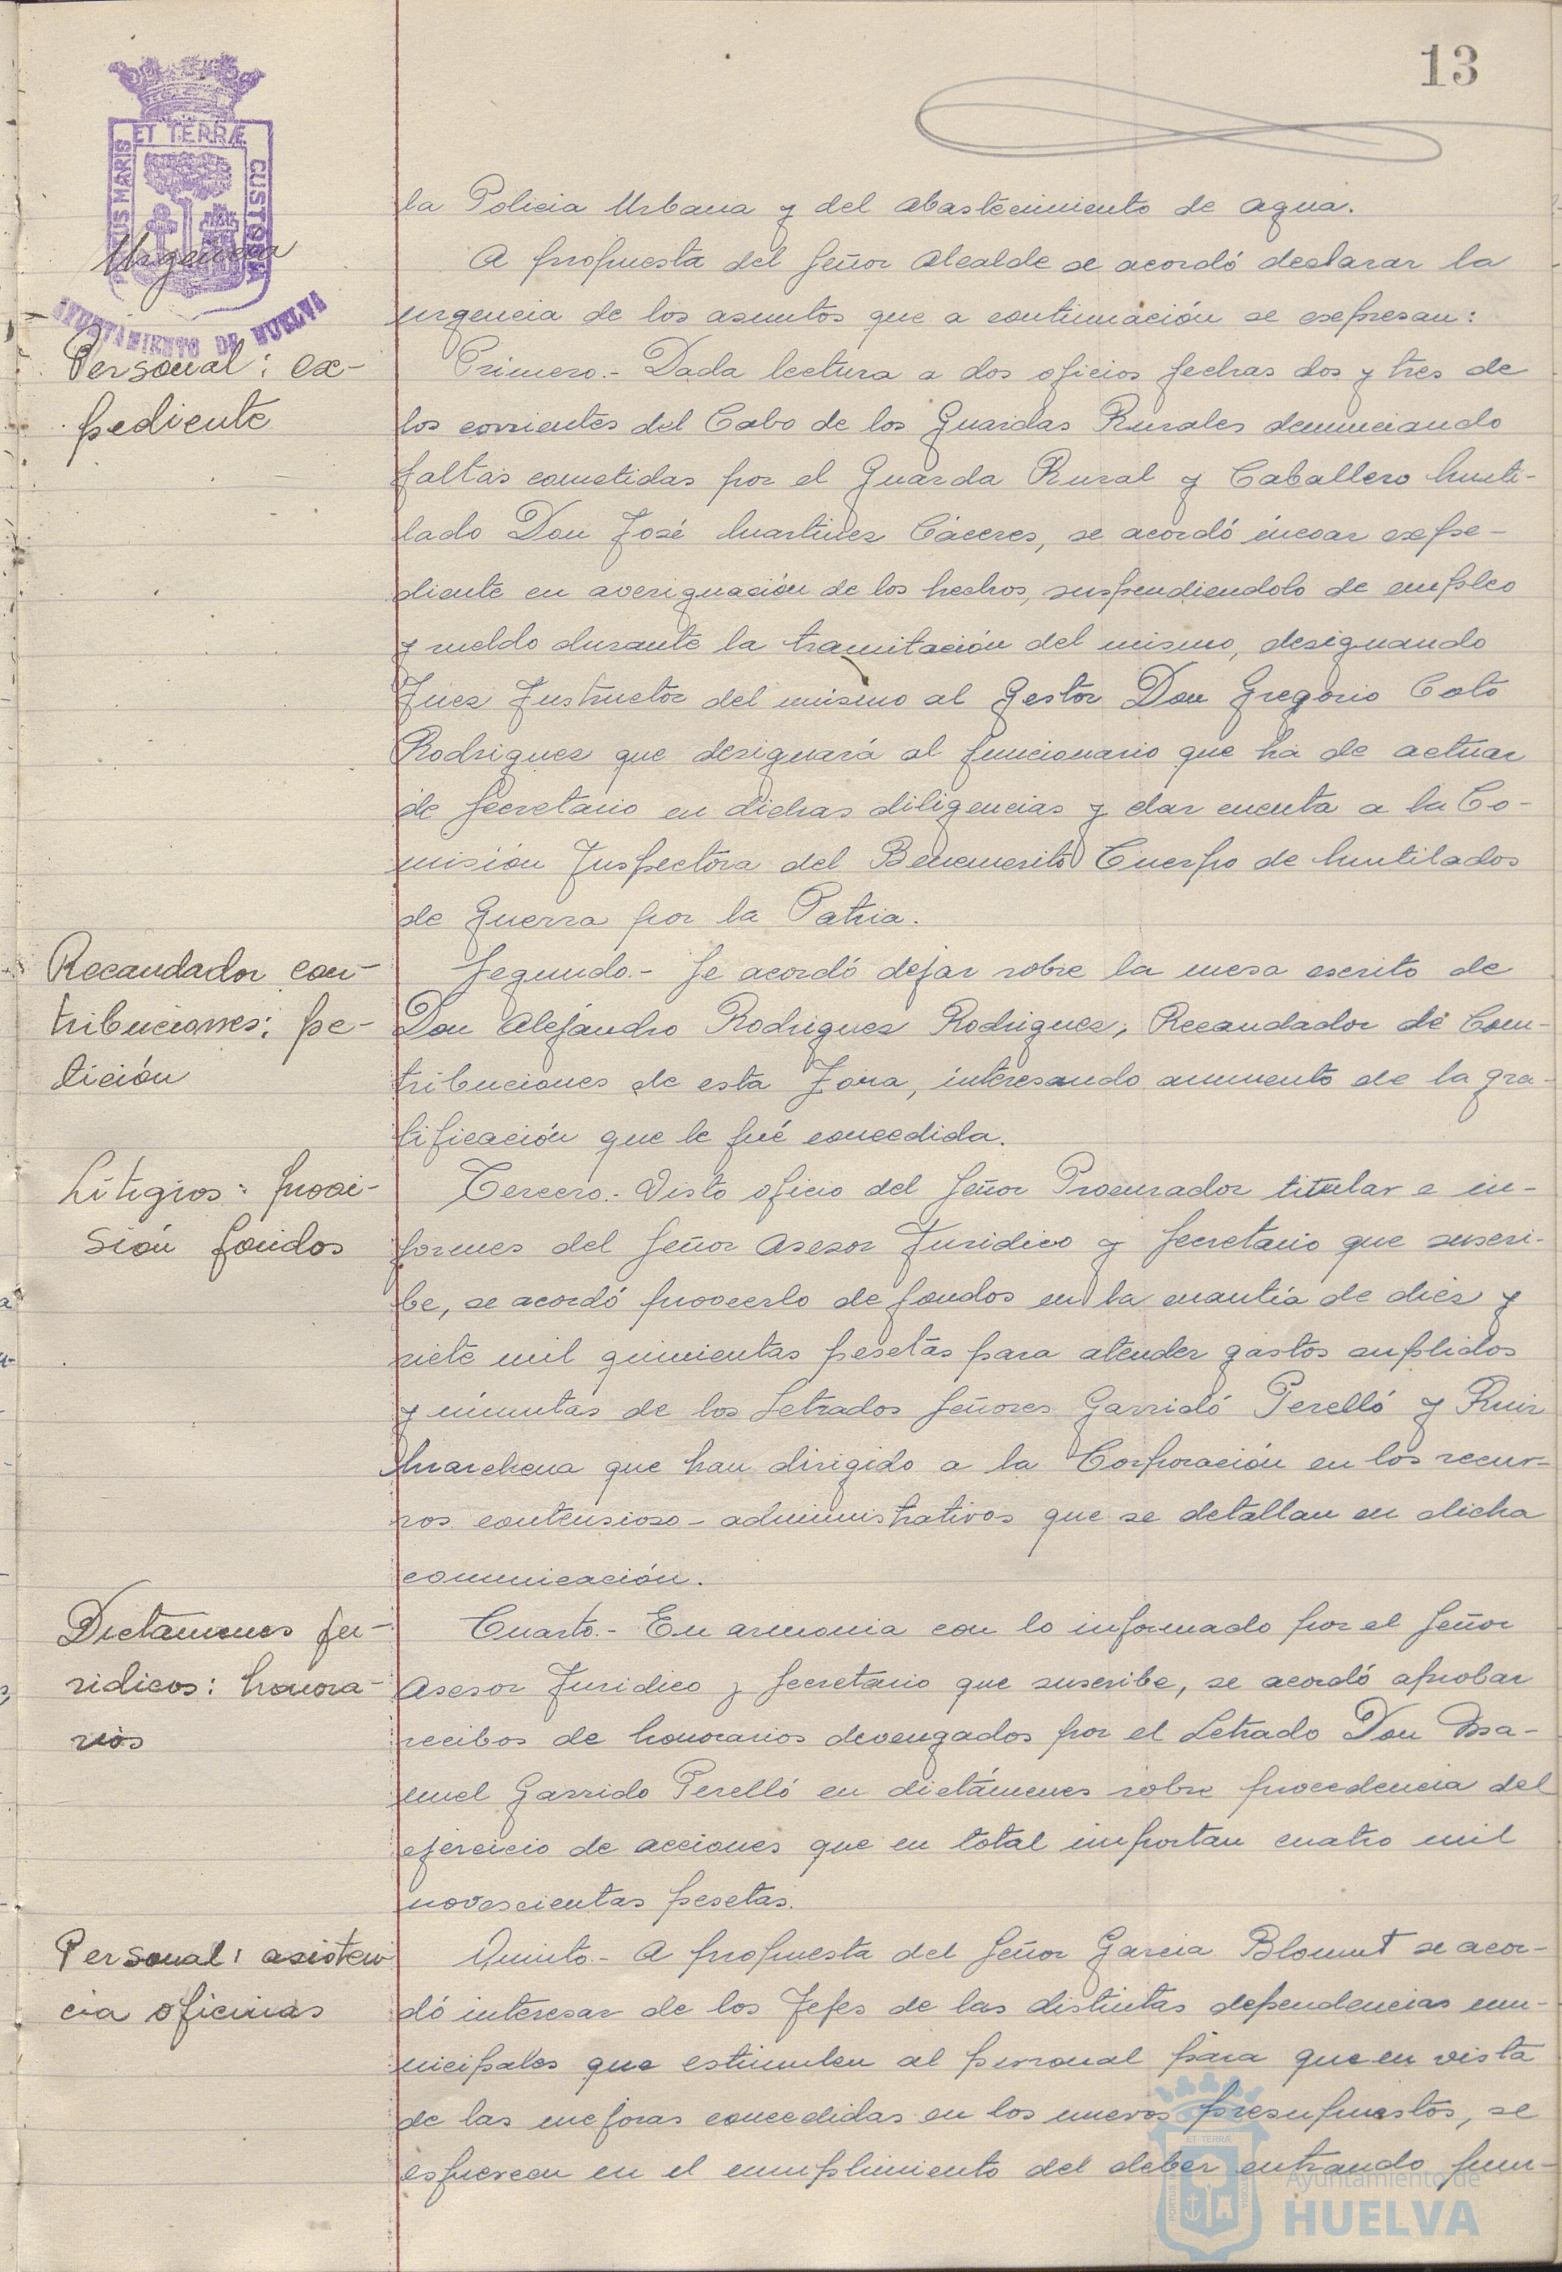 13
PORTUS MARIS ET TERRÆ CUSTODIA
AYUNTAMIENTO DE HUELVA
Urgencia
la Policia Urbana y del abastecimiento de agua.
A propuesta del Señor Alcalde se acordó declarar la
urgencia de los asuntos que a continuación se expresan:
Personal: ex-
pediente
Primero.- Dada lectura a dos oficios fechas dos y tres de
los corrientes del Cabo de los Guardas Rurales denunciando
faltas cometidas por el Guarda Rural y Caballero Muti-
lado Don José Martinez Cáceres, se acordó incoar expe-
diente en averiguación de los hechos, suspendiendolo de empleo
y sueldo durante la tramitación del mismo, designando
Juez Instructor del mismo al Gestor Don Gregorio Coto
Rodriguez que designará al funcionario que ha de actuar
de Secretario en dichas diligencias y dar cuenta a la Co-
misión Inspectora del Benemerito Cuerpo de Mutilados
de Guerra por la Patria.
Recaudador con-
tribuciones: pe-
tición
Segundo.- Se acordó dejar sobre la mesa escrito de
Don Alejandro Rodriguez Rodriguez, Recaudador de Con-
tribuciones de esta Zona, interesando aumento de la gra-
tificación que le fué concedida.
Litigios: provi-
sión fondos
Tercero.- Visto oficio del Señor Procurador titular e in-
formes del Señor Asesor Juridico y Secretario que suscri-
be, se acordó proveerlo de fondos en la cuantía de diez y
siete mil quinientas pesetas para atender gastos suplidos
y minutas de los Letrados Señores Garrido Perelló y Ruiz
Marchena que han dirigido a la Corporación en los recur-
sos contensioso-administrativos que se detallan en dicha
comunicación.
Dictamenes ju-
ridicos: honora-
rios
Cuarto.- En armonia con lo informado por el Señor
Asesor Juridico y Secretario que suscribe, se acordó aprobar
recibos de honorarios devengados por el Letrado Don Ma-
nuel Garrido Perelló en dictámenes sobre procedencia del
ejercicio de acciones que en total importan cuatro mil
novescientas pesetas.
Personal: asisten-
cia oficinas
Quinto.- A propuesta del Señor Garcia Blomut se acor-
dó interesar de los Jefes de las distintas dependencias mu-
nicipales que estimulen al personal para que en vista
de las mejoras concedidas en los nuevos presupuestos, se
esfuercen en el cumplimiento del deber entrando pun-
Ayuntamiento de
HUELVA